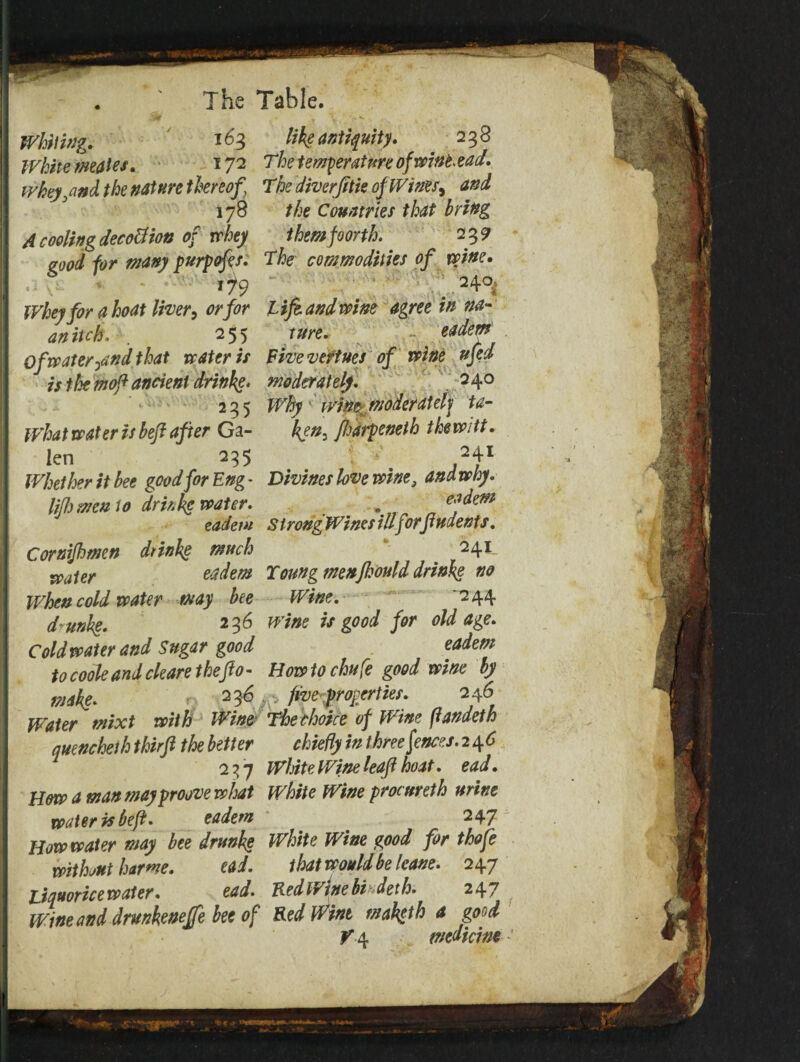 The Table.
Whiting. 163
White meates. 172
Whey, and the nature thereof,
178
A cooling decoction of whey
good for many purposes.
179
Whey for a hoat liver, or for
an itch. 255
Of water, and that water is
is the most ancient drinke.
235
What water is best after Ga-
len 235
Whether it bee good for Eng-
lish men to drinke water.
eadem
Cornishmen drinke much
water eadem
When cold water may bee
drunke. 236
Cold water and Sugar good
to coole and cleare the sto-
make. 236
Water mixt with Wine
quencheth thirst the better
237
How a man may proove what
water is best. eadem
How water may bee drunke
without harme. ead.
Liquorice water. ead.
Wine and drunkenesse bee of
like antiquity. 238
The temperature of wine. ead.
The diversitie of Wines, and
the Countries that bring
them foorth. 239
The commodities of wine.
240.
Life and wine agree in na-
ture. eadem
Five vertues of wine used
moderately. 240
Why wine moderately ta-
ken, sharpeneth the witt.
241
Divines love wine, and why.
eadem
Strong Wines ill for students.
241
Young men should drinke no
Wine. 244
Wine is good for old age.
eadem
How to chuse good wine by
five properties. 246
The choice of Wine standeth
chiefly in three sences. 246
White Wine least hoat. ead.
White Wine procureth urine
247
White Wine good for those
that would be leane. 247
Red Wine bindeth. 247
Red Wine maketh a good
V 4 medicine